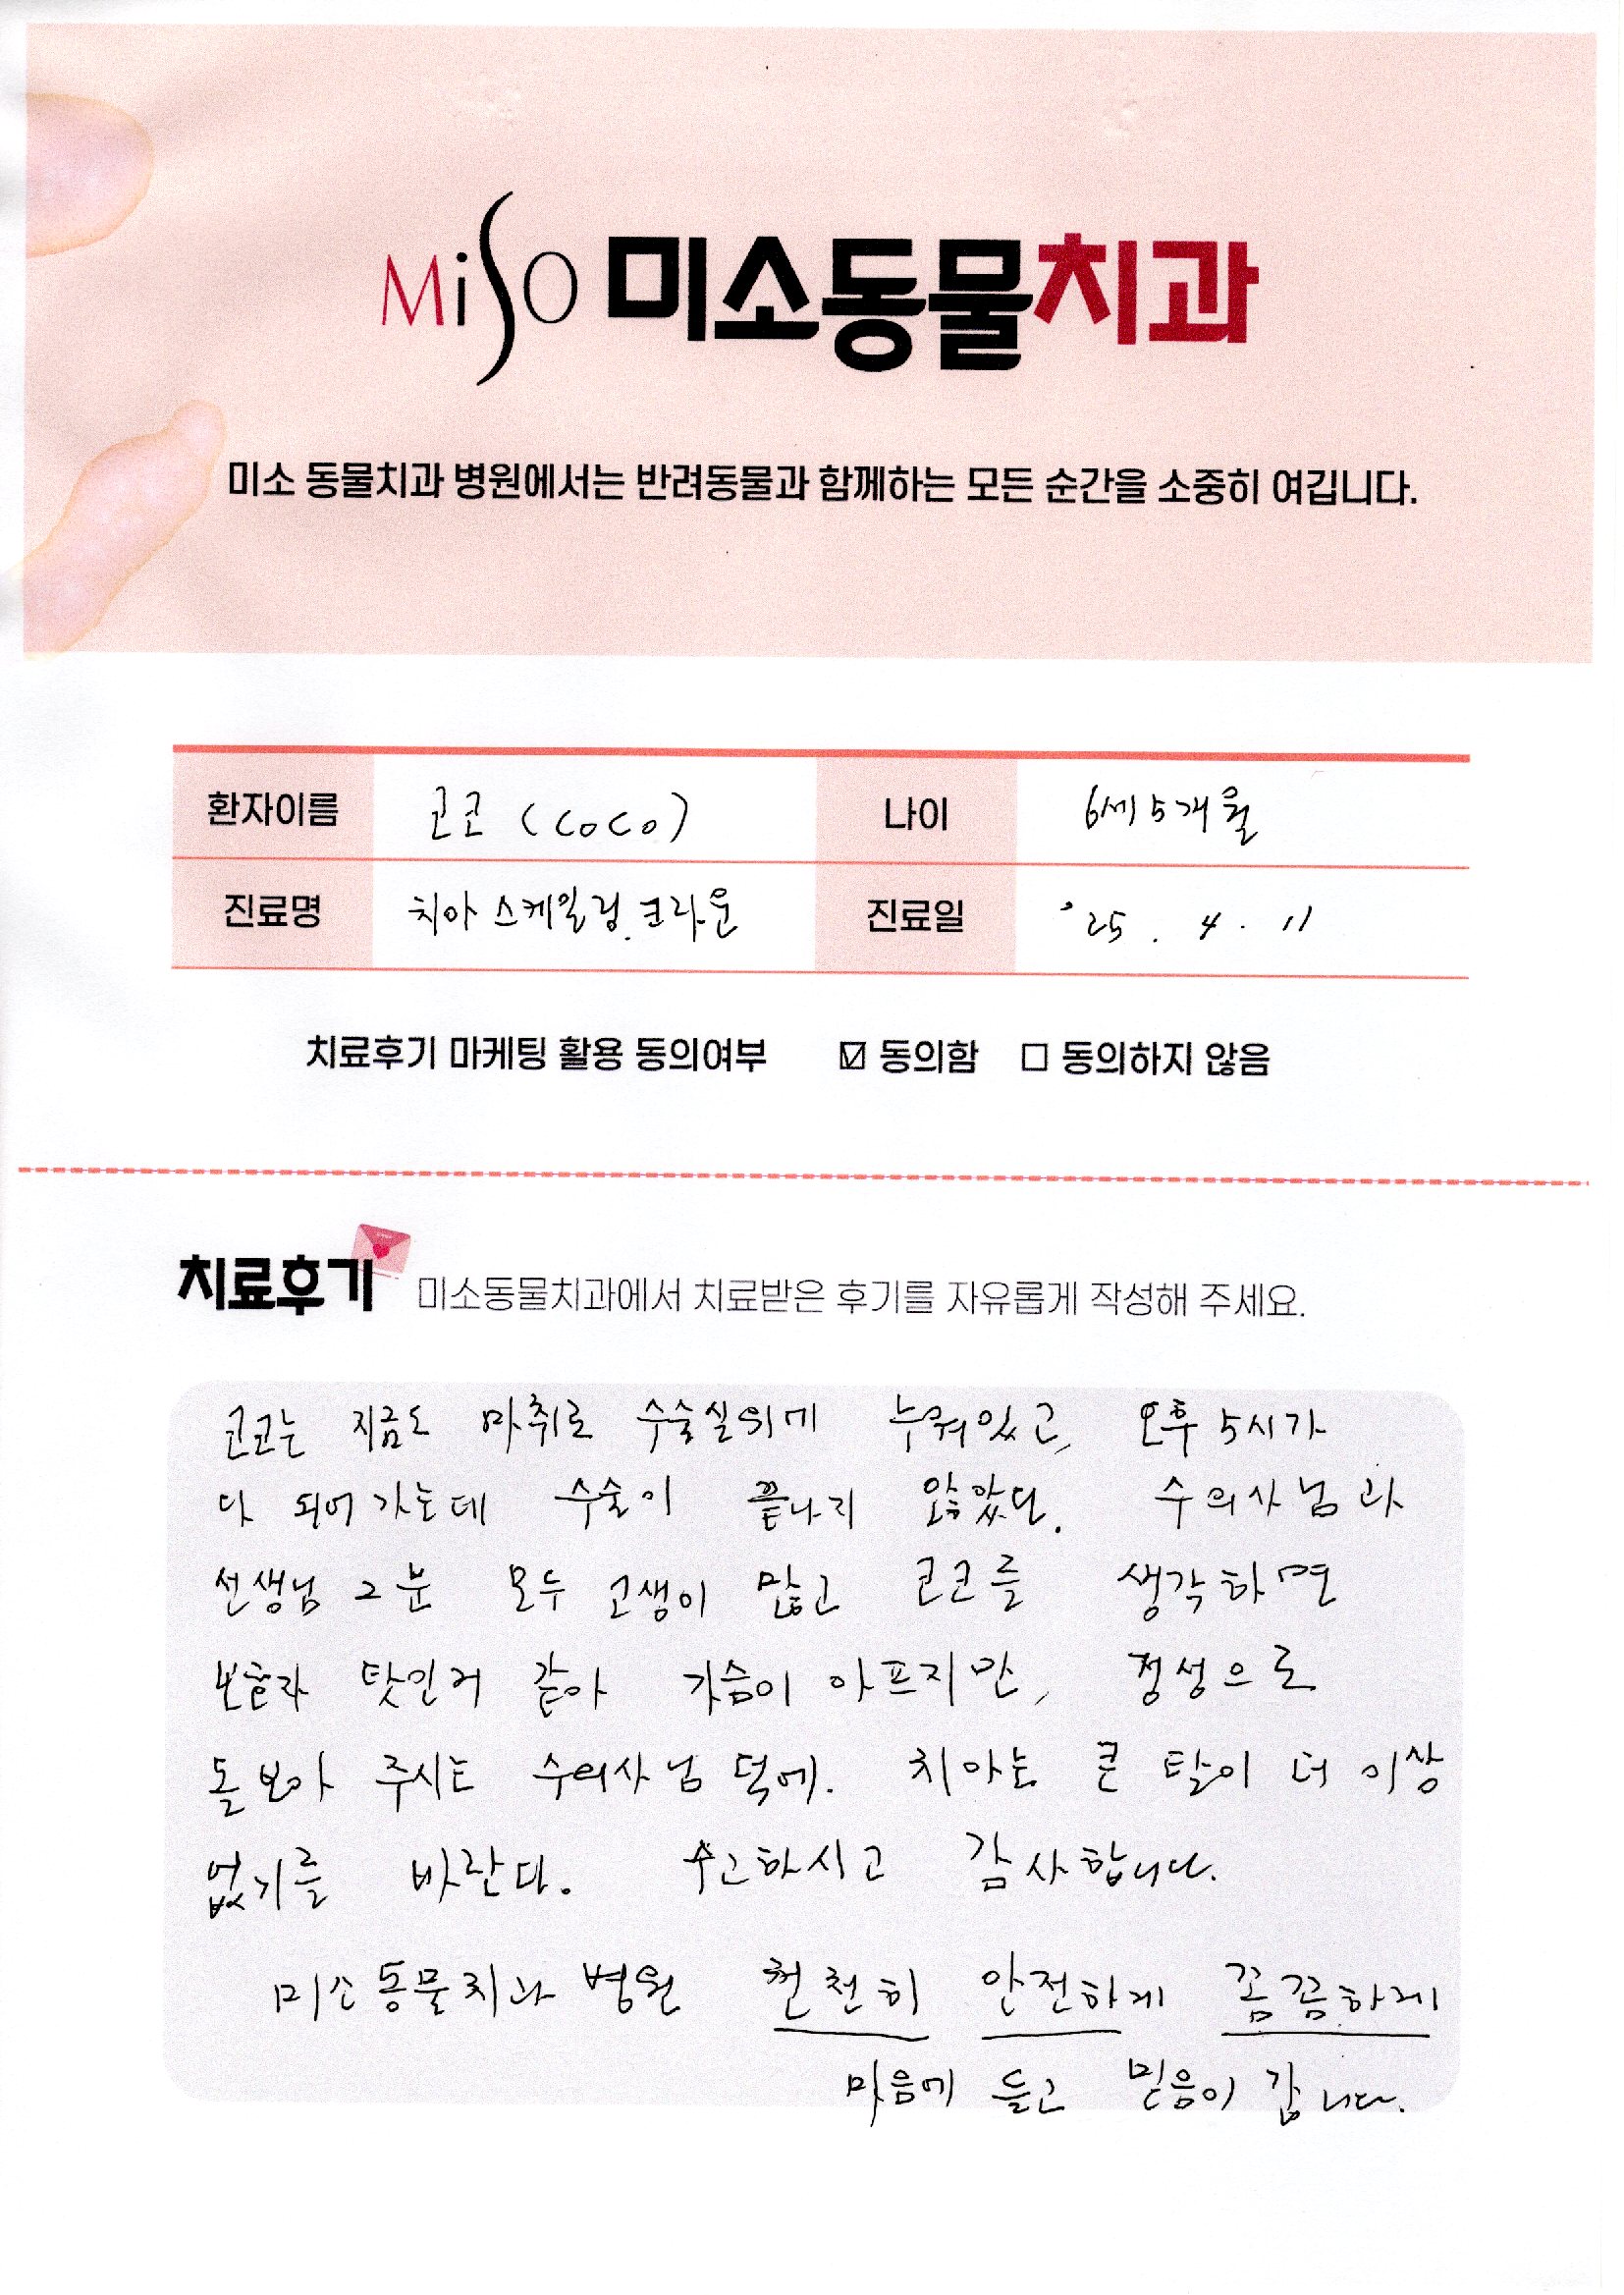 MiSO 미소동물치과
미소 동물치과 병원에서는 반려동물과 함께하는 모든 순간을 소중히 여깁니다.
환자이름 코코 (CoCo) 나이 6세 5개월
진료명 치아 스케일링. 크라운 진료일 '25. 4. 11
치료후기 마케팅 활용 동의여부 ☑ 동의함 ☐ 동의하지 않음
치료후기 미소동물치과에서 치료받은 후기를 자유롭게 작성해 주세요.
코코는 지금도 마취로 수술실의에 누워있고, 오후 5시가
다 되어 가는데 수술이 끝나지 않았다. 수의사님과
선생님 2분 모두 고생이 많고 코코를 생각하면
보호자 탓인거 같아 가슴이 아프지만, 정성으로
돌보아 주시는 수의사님 덕에. 치아는 큰 탈이 더 이상
없기를 바란다. 수고하시고 감사합니다.
미소동물치과 병원 천천히 안전하게 꼼꼼하게
마음에 들고 믿음이 갑니다.